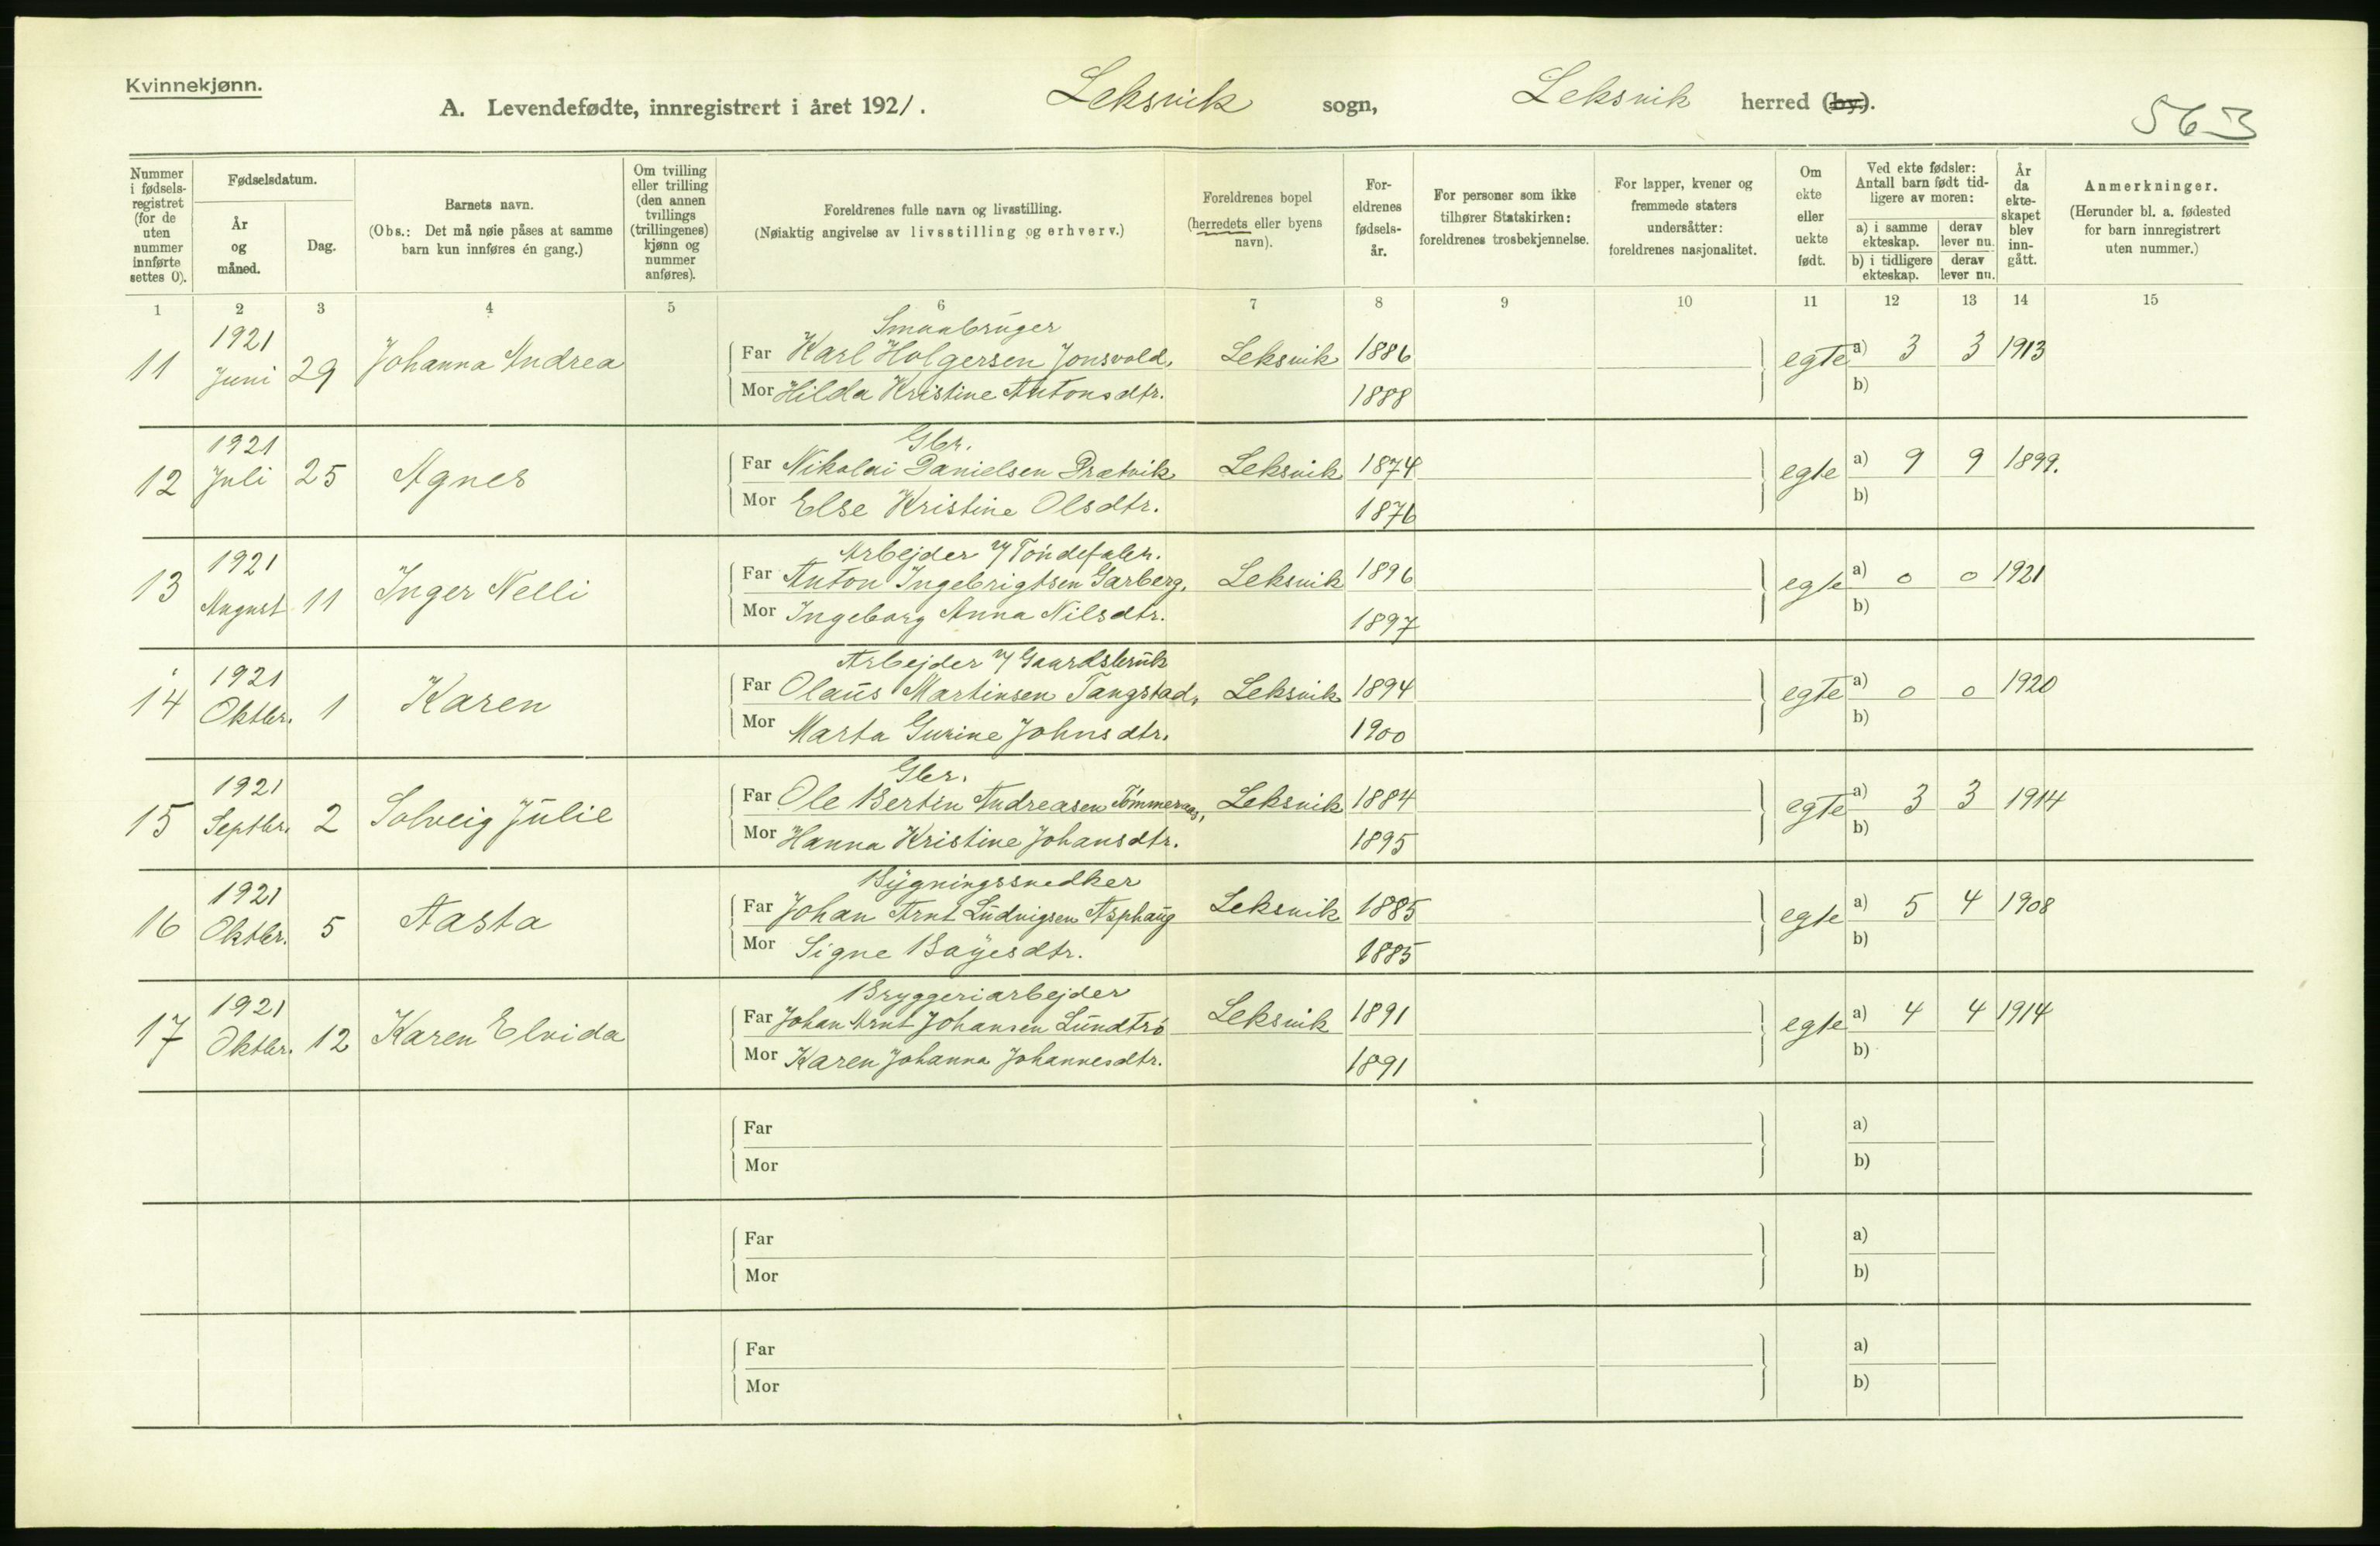 Kvinnekjønn.
A. Levendefødte, innregistrert i året 1921. Leksvik sogn, Leksvik herred (by).
563
Nummer i fødselsregistret (for de uten nummer innførte settes 0).
Fødselsdatum.
År og måned.
Dag.
Barnets navn.
(Obs.: Det må nøie påses at samme barn kun innføres én gang.)
Om tvilling eller trilling (den annen tvillings (trillingenes) kjønn og nummer anføres).
Foreldrenes fulle navn og livsstilling.
(Nøiaktig angivelse av livsstilling og erhverv.)
Foreldrenes bopel (herredets eller byens navn).
Foreldrenes fødselsår.
For personer som ikke tilhører Statskirken: foreldrenes trosbekjennelse.
For lapper, kvener og fremmede staters undersåtter: foreldrenes nasjonalitet.
Om ekte eller uekte født.
Ved ekte fødsler: Antall barn født tidligere av moren:
a) i samme ekteskap.
derav lever nu.
b) i tidligere ekteskap.
derav lever nu.
År da ekteskapet blev inngått.
Anmerkninger.
(Herunder bl. a. fødested for barn innregistrert uten nummer.)
1 2 3 4 5 6 7 8 9 10 11 12 13 14 15
Smaabruger
11 1921 Juni 29 Johanna Andrea Far Karl Holgersen Jonsvold, Leksvik 1886 egte a) 3 3 1913
Mor Hilda Kristine Antonsdtr. 1888 b)
Gbr.
12 1921 Juli 25 Agnes Far Nikolai Danielsen Prætvik Leksvik 1874 egte a) 9 9 1899.
Mor Else Kristine Olsdtr. 1876 b)
Arbejder v/ Töndefabr.
13 1921 August 11 Inger Nelli Far Anton Ingebrigtsen Garberg, Leksvik 1896 egte a) 0 0 1921
Mor Ingeborg Anna Nilsdtr. 1897 b)
Arbejder v/ Gaardsbrük
14 1921 Oktbr. 1 Karen Far Olaüs Martinsen Tangstad, Leksvik 1894 egte a) 0 0 1920
Mor Marta Gurine Johnsdtr. 1900 b)
Gbr.
15 1921 Septbr. 2 Solveig Jülie Far Ole Bertin Andreasen Tömmeraas, Leksvik 1884 egte a) 3 3 1914
Mor Hanna Kristine Johansdtr. 1895 b)
Bygningssnedker
16 1921 Oktbr. 5 Aasta Far Johan Arnt Lüdvigsen Asphaüg Leksvik 1885 egte a) 5 4 1908
Mor Signe Bøyesdtr. 1885 b)
Bryggeriarbejder
17 1921 Oktbr. 12 Karen Elvida Far Johan Arnt Johansen Lündtrö Leksvik 1891 egte a) 4 4 1914
Mor Karen Johanna Johannesdtr. 1891 b)
Far a)
Mor b)
Far a)
Mor b)
Far a)
Mor b)